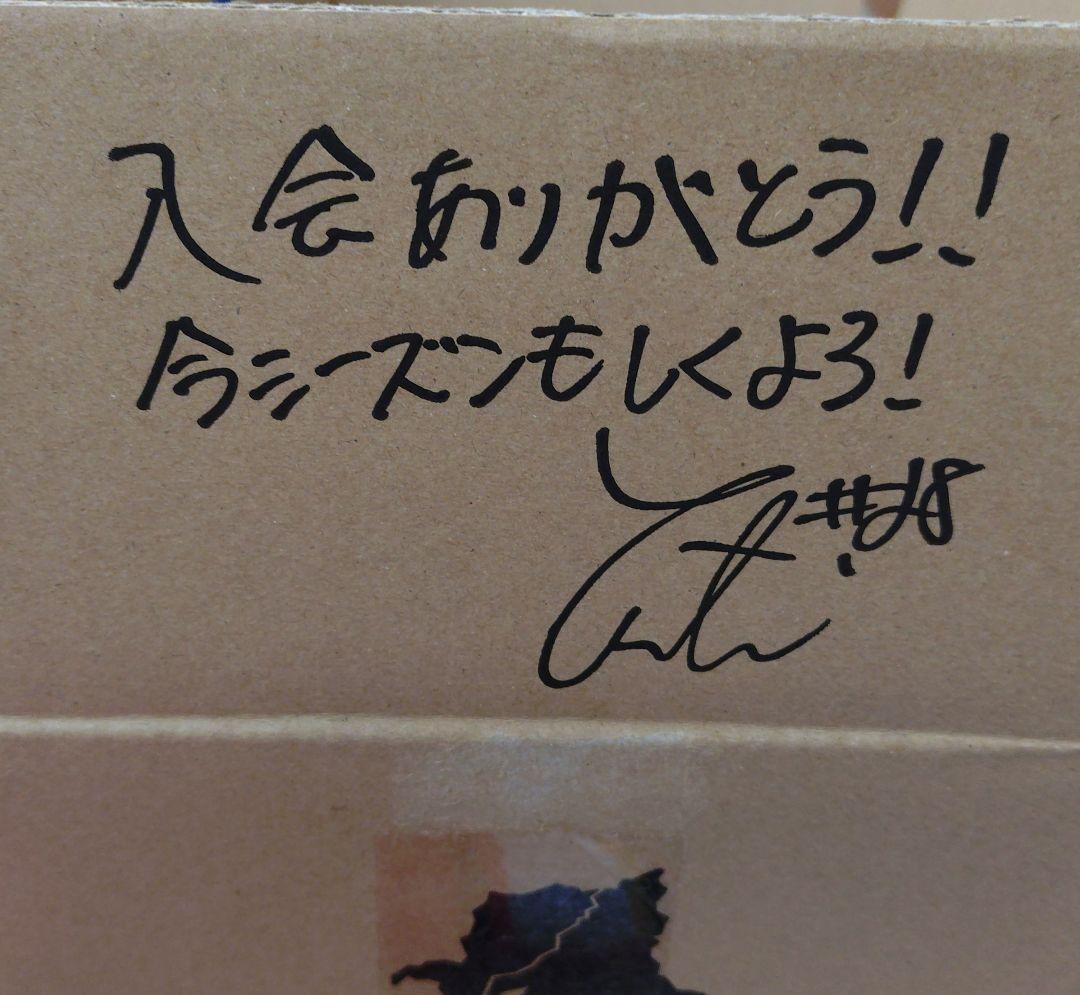 入会ありがとう!!
今シーズンもしくよろ!
#28